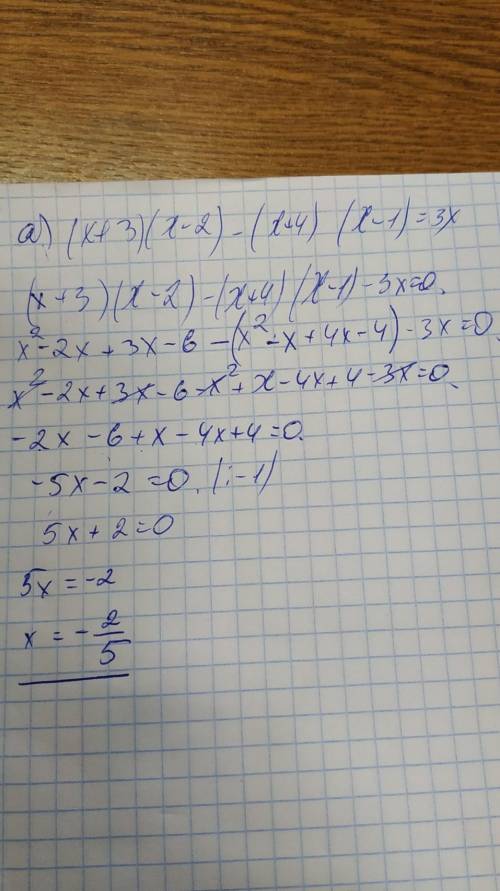 а) (x+3)(x-2)-(x+4)(x-1)=3x
(x+3)(x-2)-(x+4)(x-1)-3x=0.
x²-2x+3x-6-(x²-x+4x-4)-3x=0.
x²-2x+3x-6-x²+x-4x+4-3x=0.
-2x-6+x-4x+4=0.
-5x-2=0. (:-1)
5x+2=0
5x=-2
x=-2/5